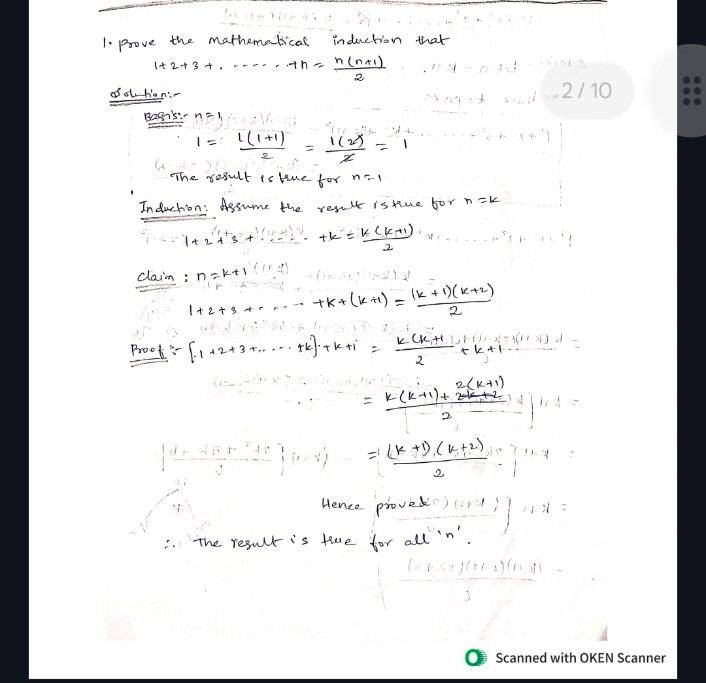 1. prove the mathematical induction that
1+2+3+.......+n = n(n+1)/2
2/10
Solution:-
Basis:- n=1
1 = 1(1+1)/2 = 1(2)/2 = 1
The result is true for n=1
Induction: Assume the result is true for n=k
1+2+3+....... +k = k(k+1)/2
Claim : n=k+1
1+2+3+....... +k+(k+1) = (k+1)(k+2)/2
Proof :- [1+2+3+......+k]+k+1 = k(k+1)/2 + k+1
= k(k+1)+2(k+1)/2
= (k+1).(k+2)/2
Hence proved
∴ The result is true for all 'n'.
Scanned with OKEN Scanner